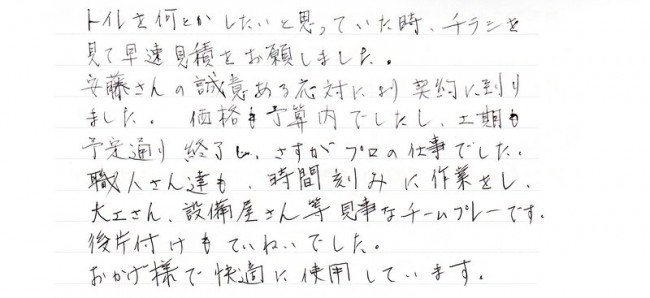 トイレを何とかしたいと思っていた時、チラシを
見て早速見積をお願しました。
安藤さんの誠意ある応対により契約に到り
ました。 価格も予算内でしたし、工期も
予定通り終了し、さすがプロの仕事でした。
職人さん達も、時間刻みに作業をし、
大工さん、設備屋さん等見事なチームプレーです。
後片付けもていねいでした。
おかげ様で快適に使用しています。